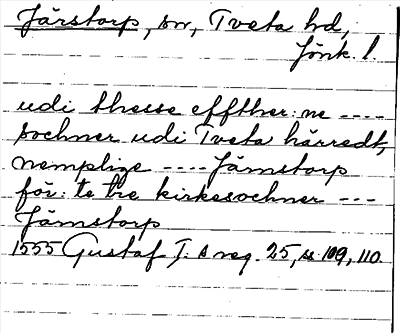 Järstorp, sn, Tveta hd,
Jönk. l.
udi thesse effther: ne ----
sochner udi Tveta härredt,
nemplige ---- Jämstorp
för: te tre kirkesochner ---
Jämstorp
1555 Gustaf I: s reg. 25, s. 109, 110.